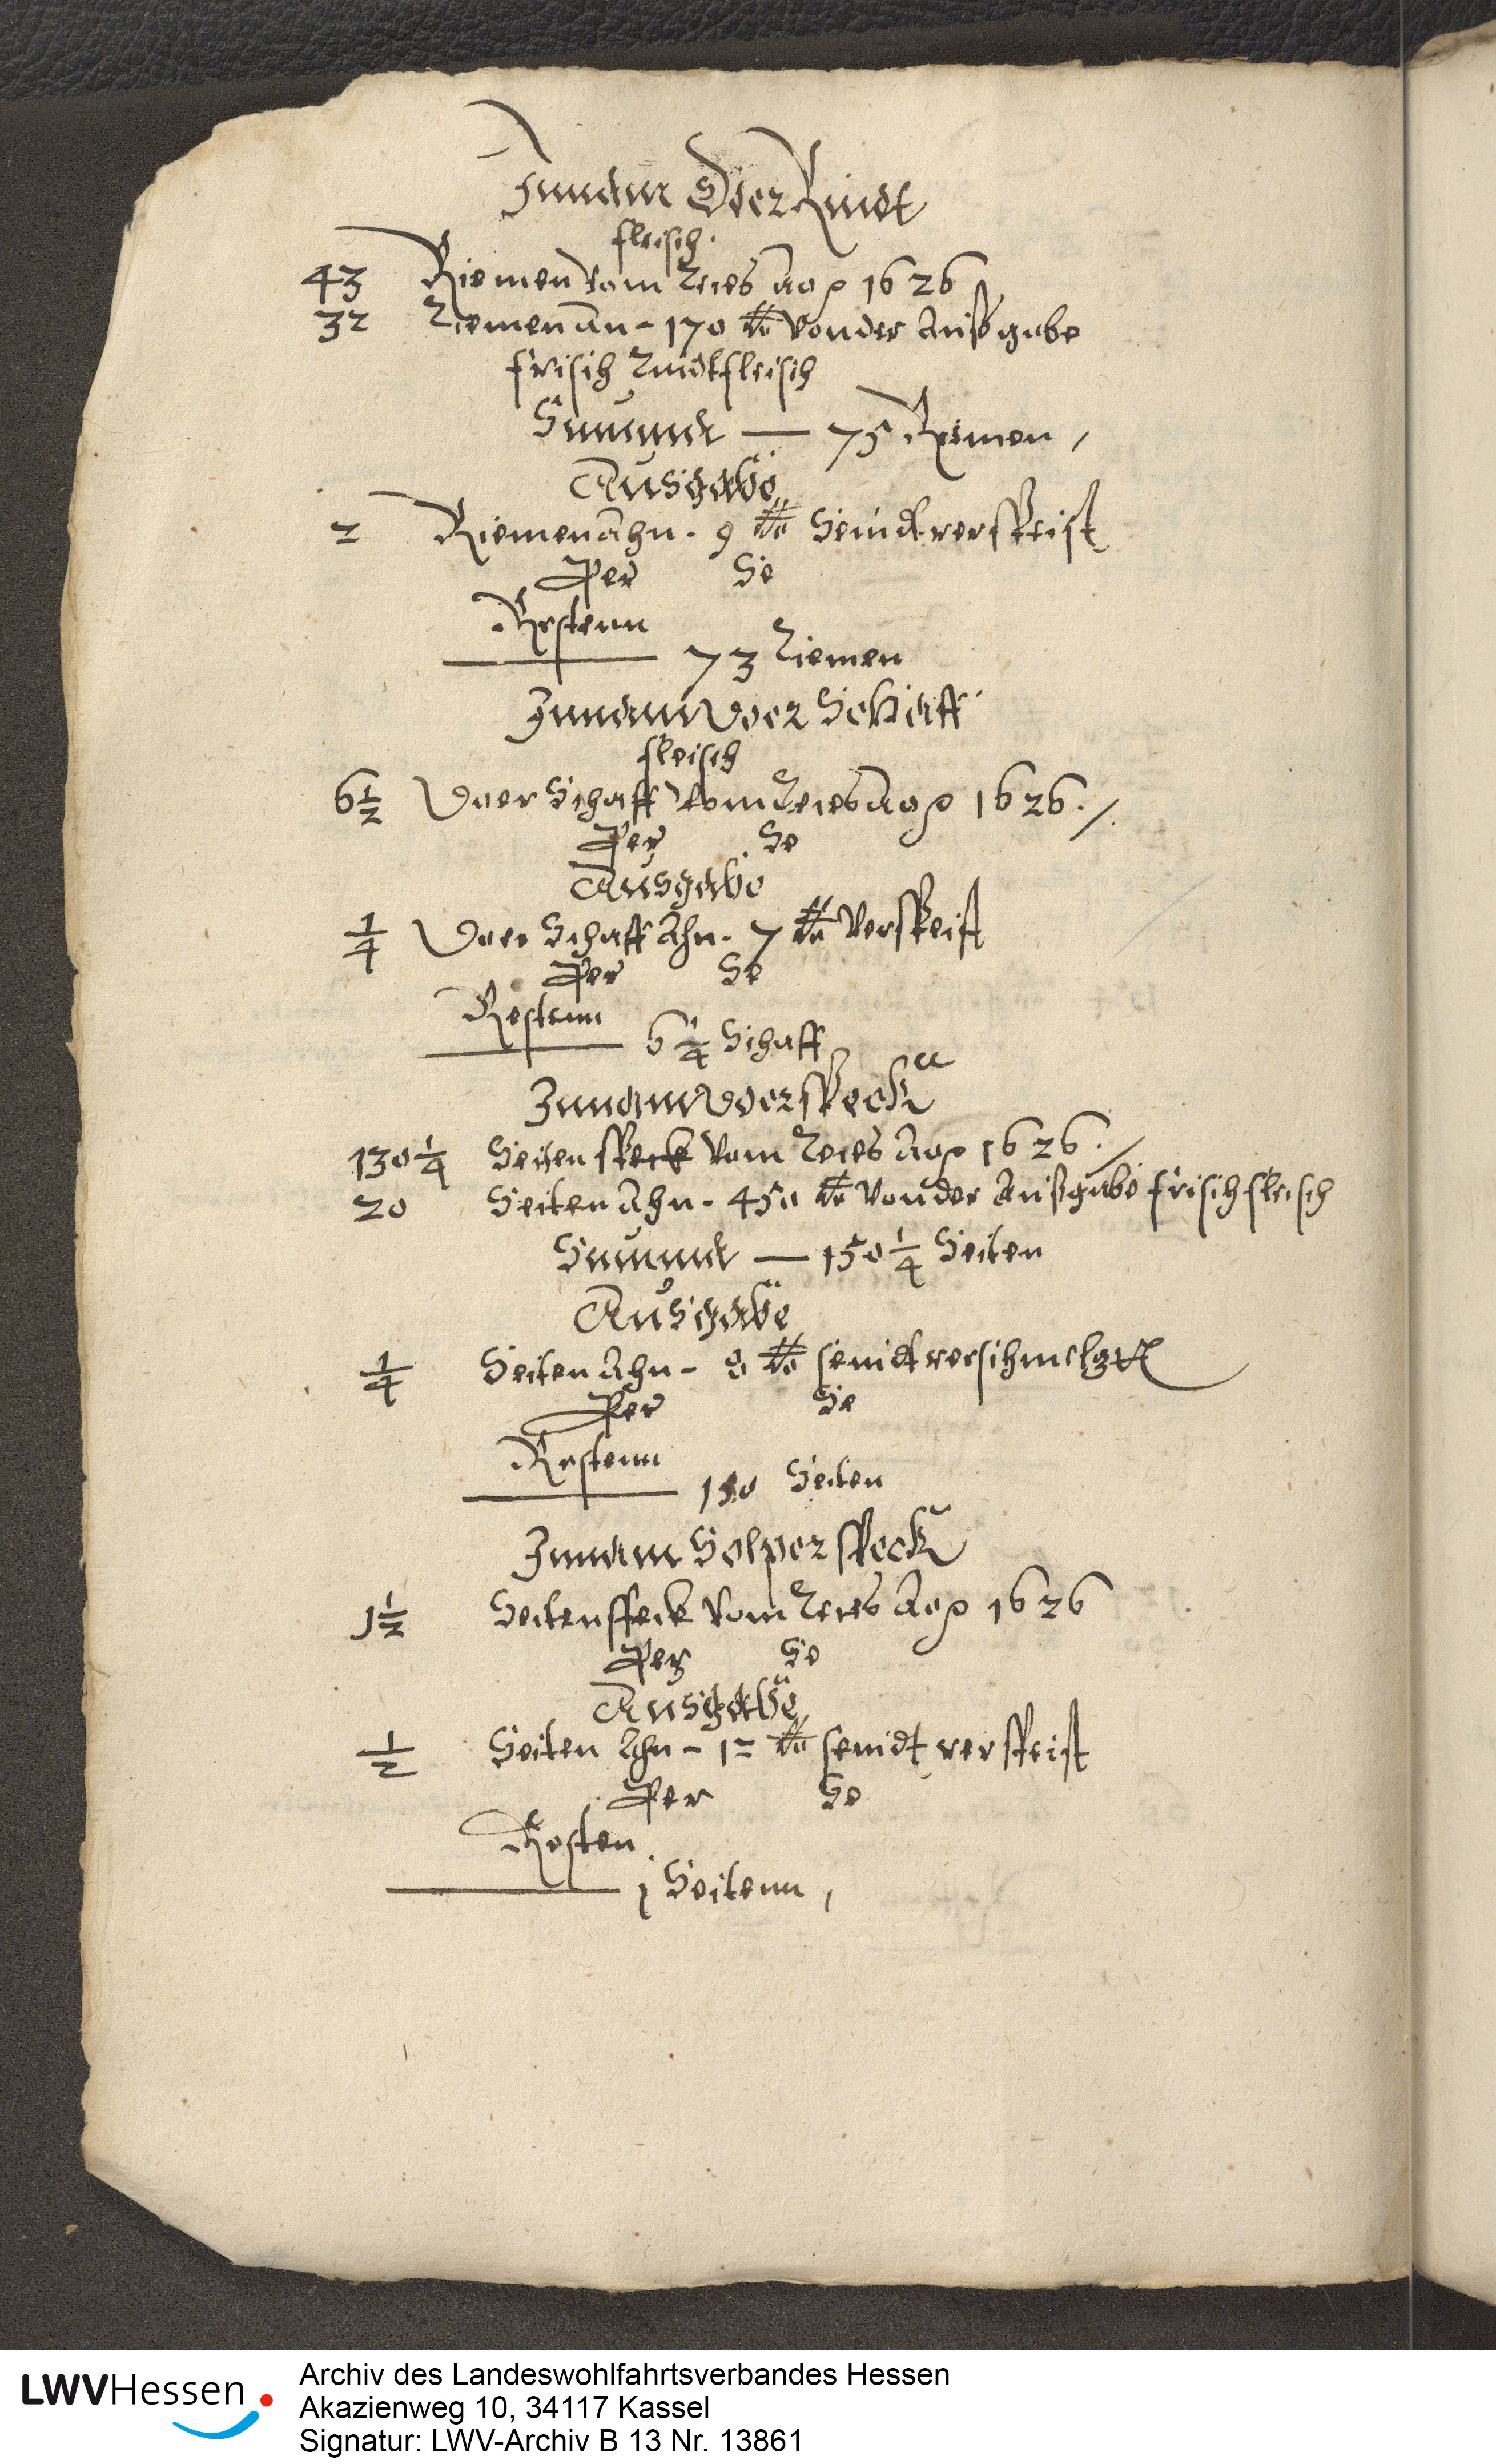 Innam Dör Rindt
fleisch.
43 Riemen vom Reces Ao 1626
32 Riemen an - 170 lb von der Außgabe
frisch Rindtfleisch
Summa — 75 Riemen,
Ausgabe
2 Riemen Ahn - 9 lb Seindt verspeist
Per Se
Restenn
73 Riemen
Innam Döer Schaff
fleisch
6 1/2 Döer Schaff vom Reces Ao 1626 ./.
Per Se
Ausgabe
1/4 Döer Schaff Ahn - 7 lb verspeist
Per Se
Restenn
6 1/4 Schaff
Innam Döer speck
130 1/4 Seiten speck vom Reces Ao 1626 ./
20 Seiten Ahn - 450 lb von der Außgabe frisch fleisch
Summa — 150 1/4 Seiten
Ausgabe
1/4 Seiten Ahn - 8 lb seindt verschmelzet
Per Se
Restenn
150 Seiten
Innam Solper speck
1 1/2 Seiten speck vom Reces Ao 1626
Per Se
Ausgabe
1/2 Seiten Ahn - 12 lb seindt verspeist
Per Se
Resten
1 Seitenn,
LWVHessen
Archiv des Landeswohlfahrtsverbandes Hessen
Akazienweg 10, 34117 Kassel
Signatur: LWV-Archiv B 13 Nr. 13861